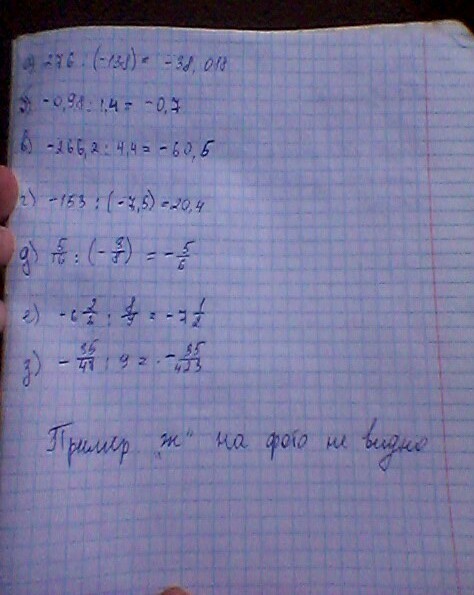 а) 276 : (-138) = -38,018
б) -0,98 : 1,4 = -0,7
в) -266,2 : 4,4 = -60,5
г) -153 : (-7,5) = 20,4
д) 5/16 : (-3/8) = -5/6
е) -6 2/3 : 8/9 = -7 1/2
з) -35/47 : 9 = -35/423
Пример „ж" на фото не видно